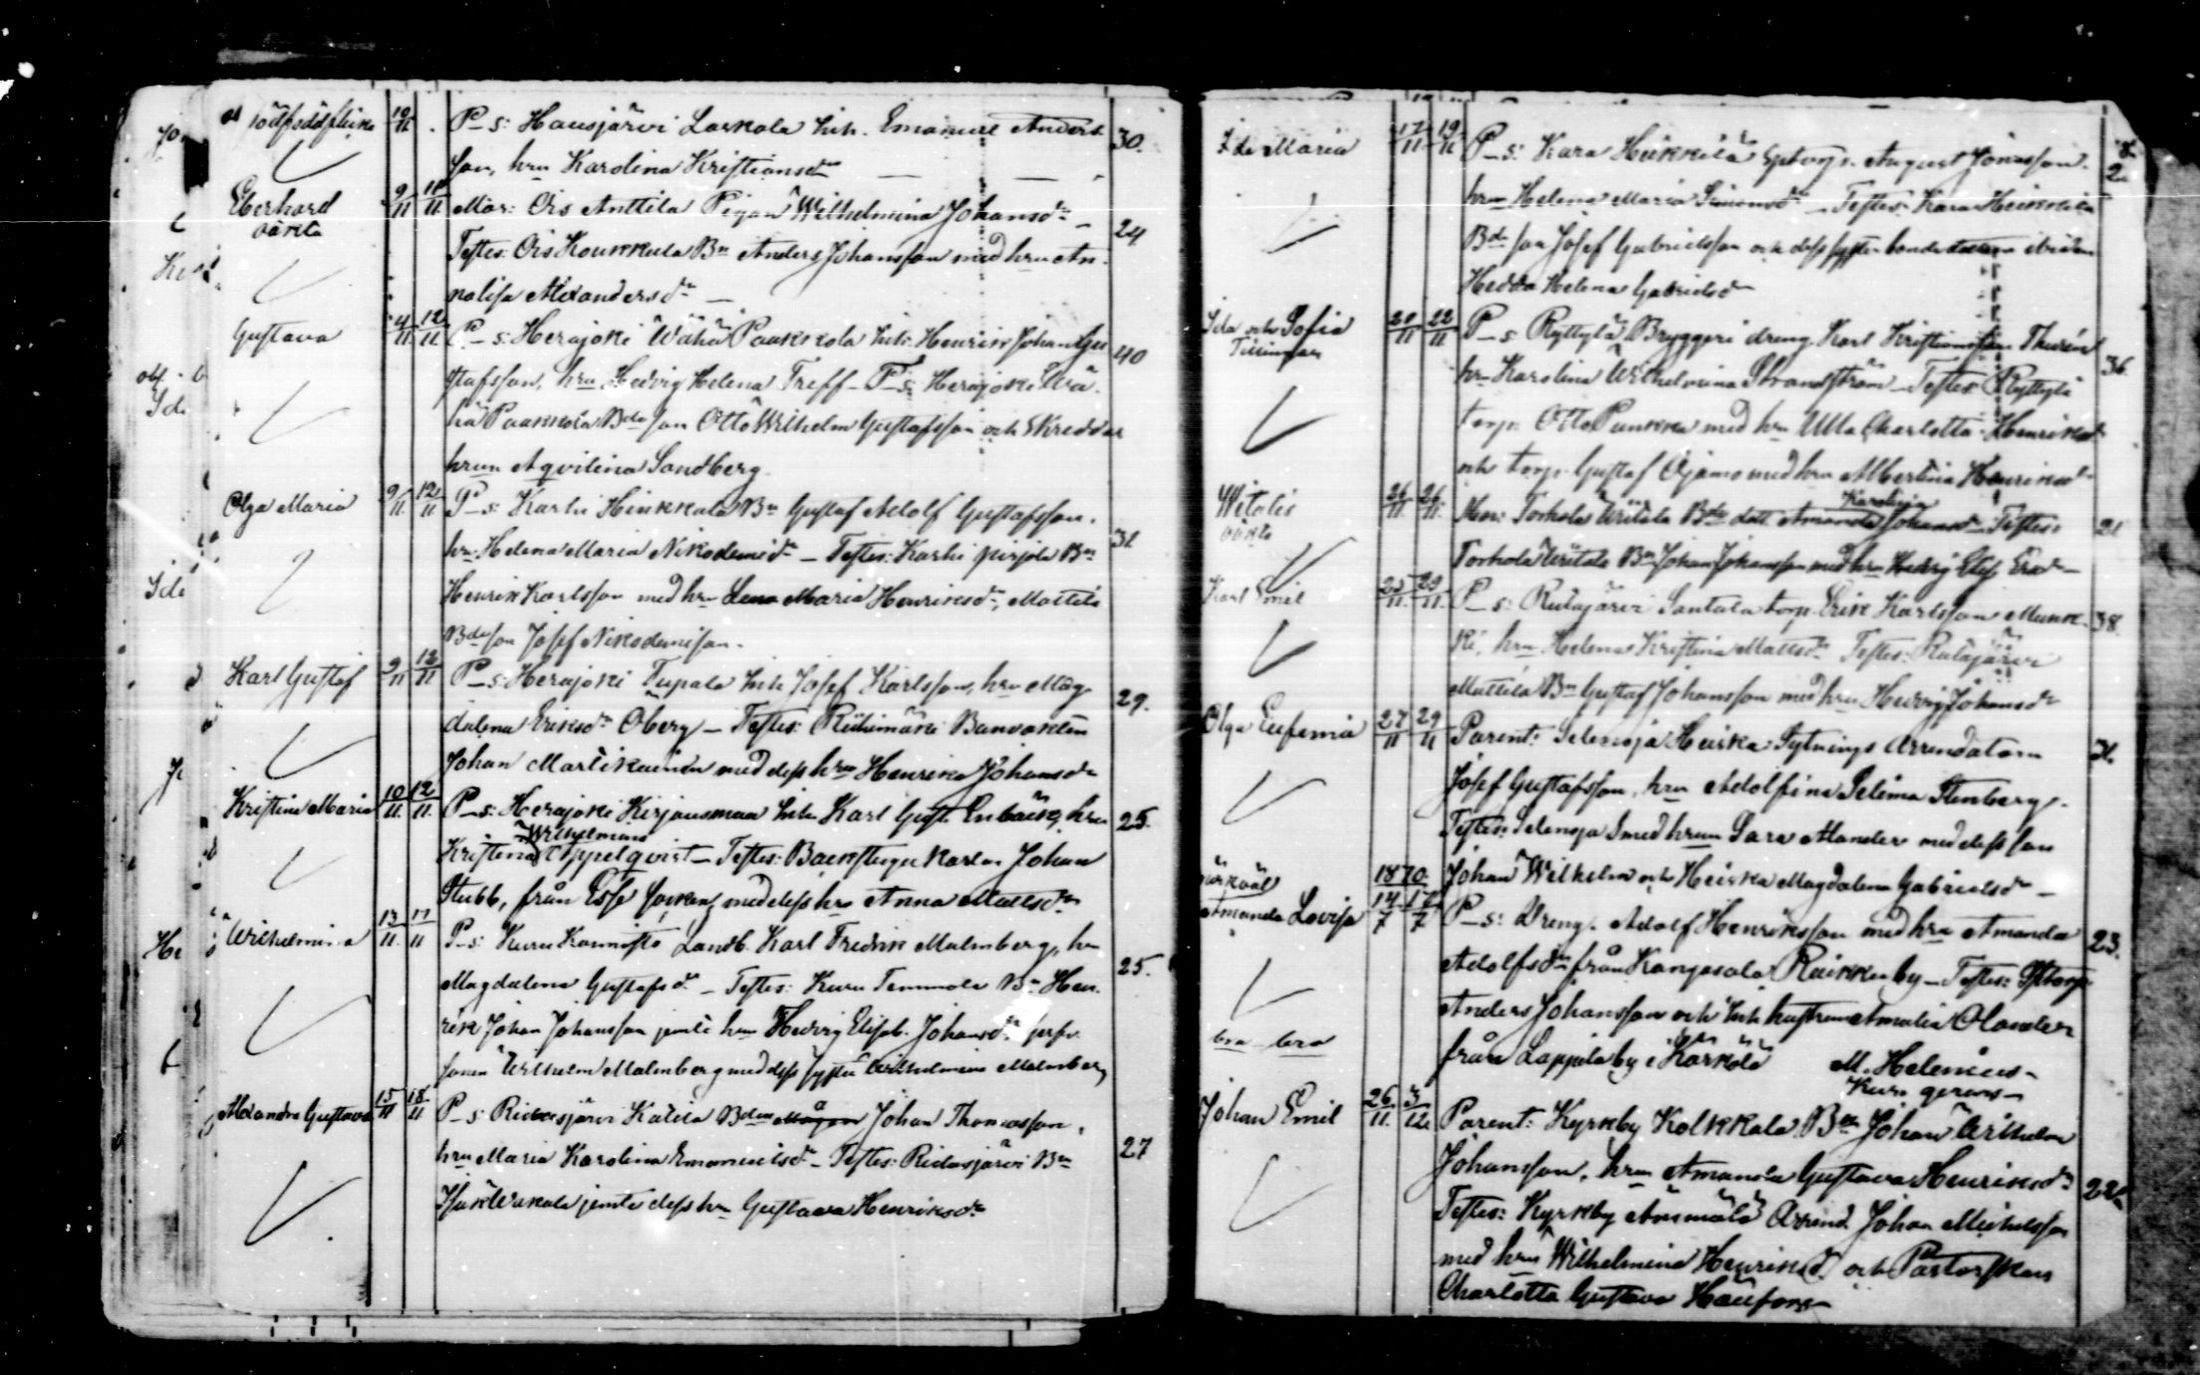 dödfödd flicka 10/11 P_s: Hausjärvi Laskala Inh. Emanuel Anders 30.
son, hru Karolina Kristiansdr
Eberhard 9/11 11/11 Mor: Ois Anttila Pigan Wilhelmina Johansdr 24
oäkta
Testes: Ois Koukkula Bn Anders Johansson med hru An
nalisa Alexandersdr
Gustava 4/11 12/11 P_s: Herajoki Wähä Paakkola Inh. Henrik Johan Gu 40
stafsson, hru Hedvig Helena Treff_ T_s: Herajoki Wä
hä Paakkola Bdeson Otto Wilhelm Gustafsson och Skreddar
hrun Aqvilina Sandberg.
Olga Maria 9/11 12/11 P_s: Karhi Heikkala Bn Gustaf Adolf Gustafsson,
hru Helena Maria Nikodemidr _ Testes: Karhi Perjola Bn 31
Henrik Karlsson med hru Lena Maria Henriksdr, Mattila
Bdeson Josef Nikodemisson.
Karl Gustaf 9/11 12/11 P_s: Herajoki Tupala Inh Josef Karlsson, hru Mag 29.
dalena Eriksdr Öberg _ Testes: Riihimäki Banvakten
Johan Martikainen med dess hru Henrika Johansdr
Kristina Maria 10/11 12/11 P_s: Herajoki Kirjausmaa Inh Karl Gust. Enbäck, hru 25.
Wilhelmina
Kristina Appelqvist _ Testes: Johan
Stubb, från Esse socken, med dess hru Anna Mattsdr
Wilhelmina 13/11 17/11 P_s: Kuru Kannisto Landb. Karl Fredrik Malmberg, hru
Magdalena Gustafsdr _ Testes: Kuru Temmola Bn Hen 25.
rik Johan Johansson jemte hru Hedvig Elisab. Johansdr
sonen Wilhelm Malmberg med dess syster Wilhelmina Malmberg
Alexandra Gustava 15/11 18/11 P_s: Ridasjärvi Katila Bden Johan Thomasson,
hru Maria Karolina Emanuelsdr _ Testes: Ridasjärvi Bn 27
Isak Wakala jemte dess hru Gustava Henriksdr
Ida Maria 17/11 19/11 P_s: Kara Heikkilä August Jonasson
hru Helena Maria Simonsdr _ Testes: Kara Heikkilä
Bdeson Josef Gabrielsson och dess syster bonde
Hedda Helena Gabrielsdr
Ida och Sofia 20/11 22/11 P_s Ryttylä Bryggeri dreng Karl Kristiansson Thurén 36
Tvillingar
hru Karolina Wilhelmina Strandström _ Testes: Ryttylä
torp. Otto Punkka med hru Ulla Charlotta Henriksdr
och torp. Gustaf Ojamo med hru Albertina Henriksdr
Karolina
Witalis 26/11 26/11 Mor: Torhola Uotila Bde dott. Amanda Johansdr Testes: 21
oäkta
Torhola Uotila Bn Johan Johansson med hru Hedvig Elis. Ersdr
Karl Emil 25/11 29/11 P_s: Ridasjärvi Santala torp. Erik Karlsson Munk 38.
ki, hru Helena Kristina Mattsdr Testes: Ridasjärvi
Mattila Bn Gustaf Johansson med hru Hedvig Johansdr
Olga Eufemia 27/11 29/11 Parent: Selensjä Heiska Sytnings Arrendatorn
Josef Gustafsson, hru Adolfina Selima Stenberg.
Testes: Selensja Smed hrun Sara Alander med dess son
1870. Johan Wilhelm och Heiska Magdalena Gabrielsdr _
Amanda Lovisa 14/7 17/7 P_s: Dreng. Adolf Henriksson med hru Amanda 23.
Adolfsdr från Kangasala Raikku by _ Testes:
Anders Johansson och Inh hustrun Amalia Olander
från Lappila by i Kärkölä M. Helenius
Johan Emil 26/11 3/12 Parent: Kyrkby Kolkkala Bn Johan Wilhelm
Johansson, hru Amanda Gustava Henriksdr 22
Testes: Kyrkby Änimälä Arrend. Johan Michelsson
med hru Wilhelmina Henriksd. och Pastorskan
Charlotta Gustava Hällfors